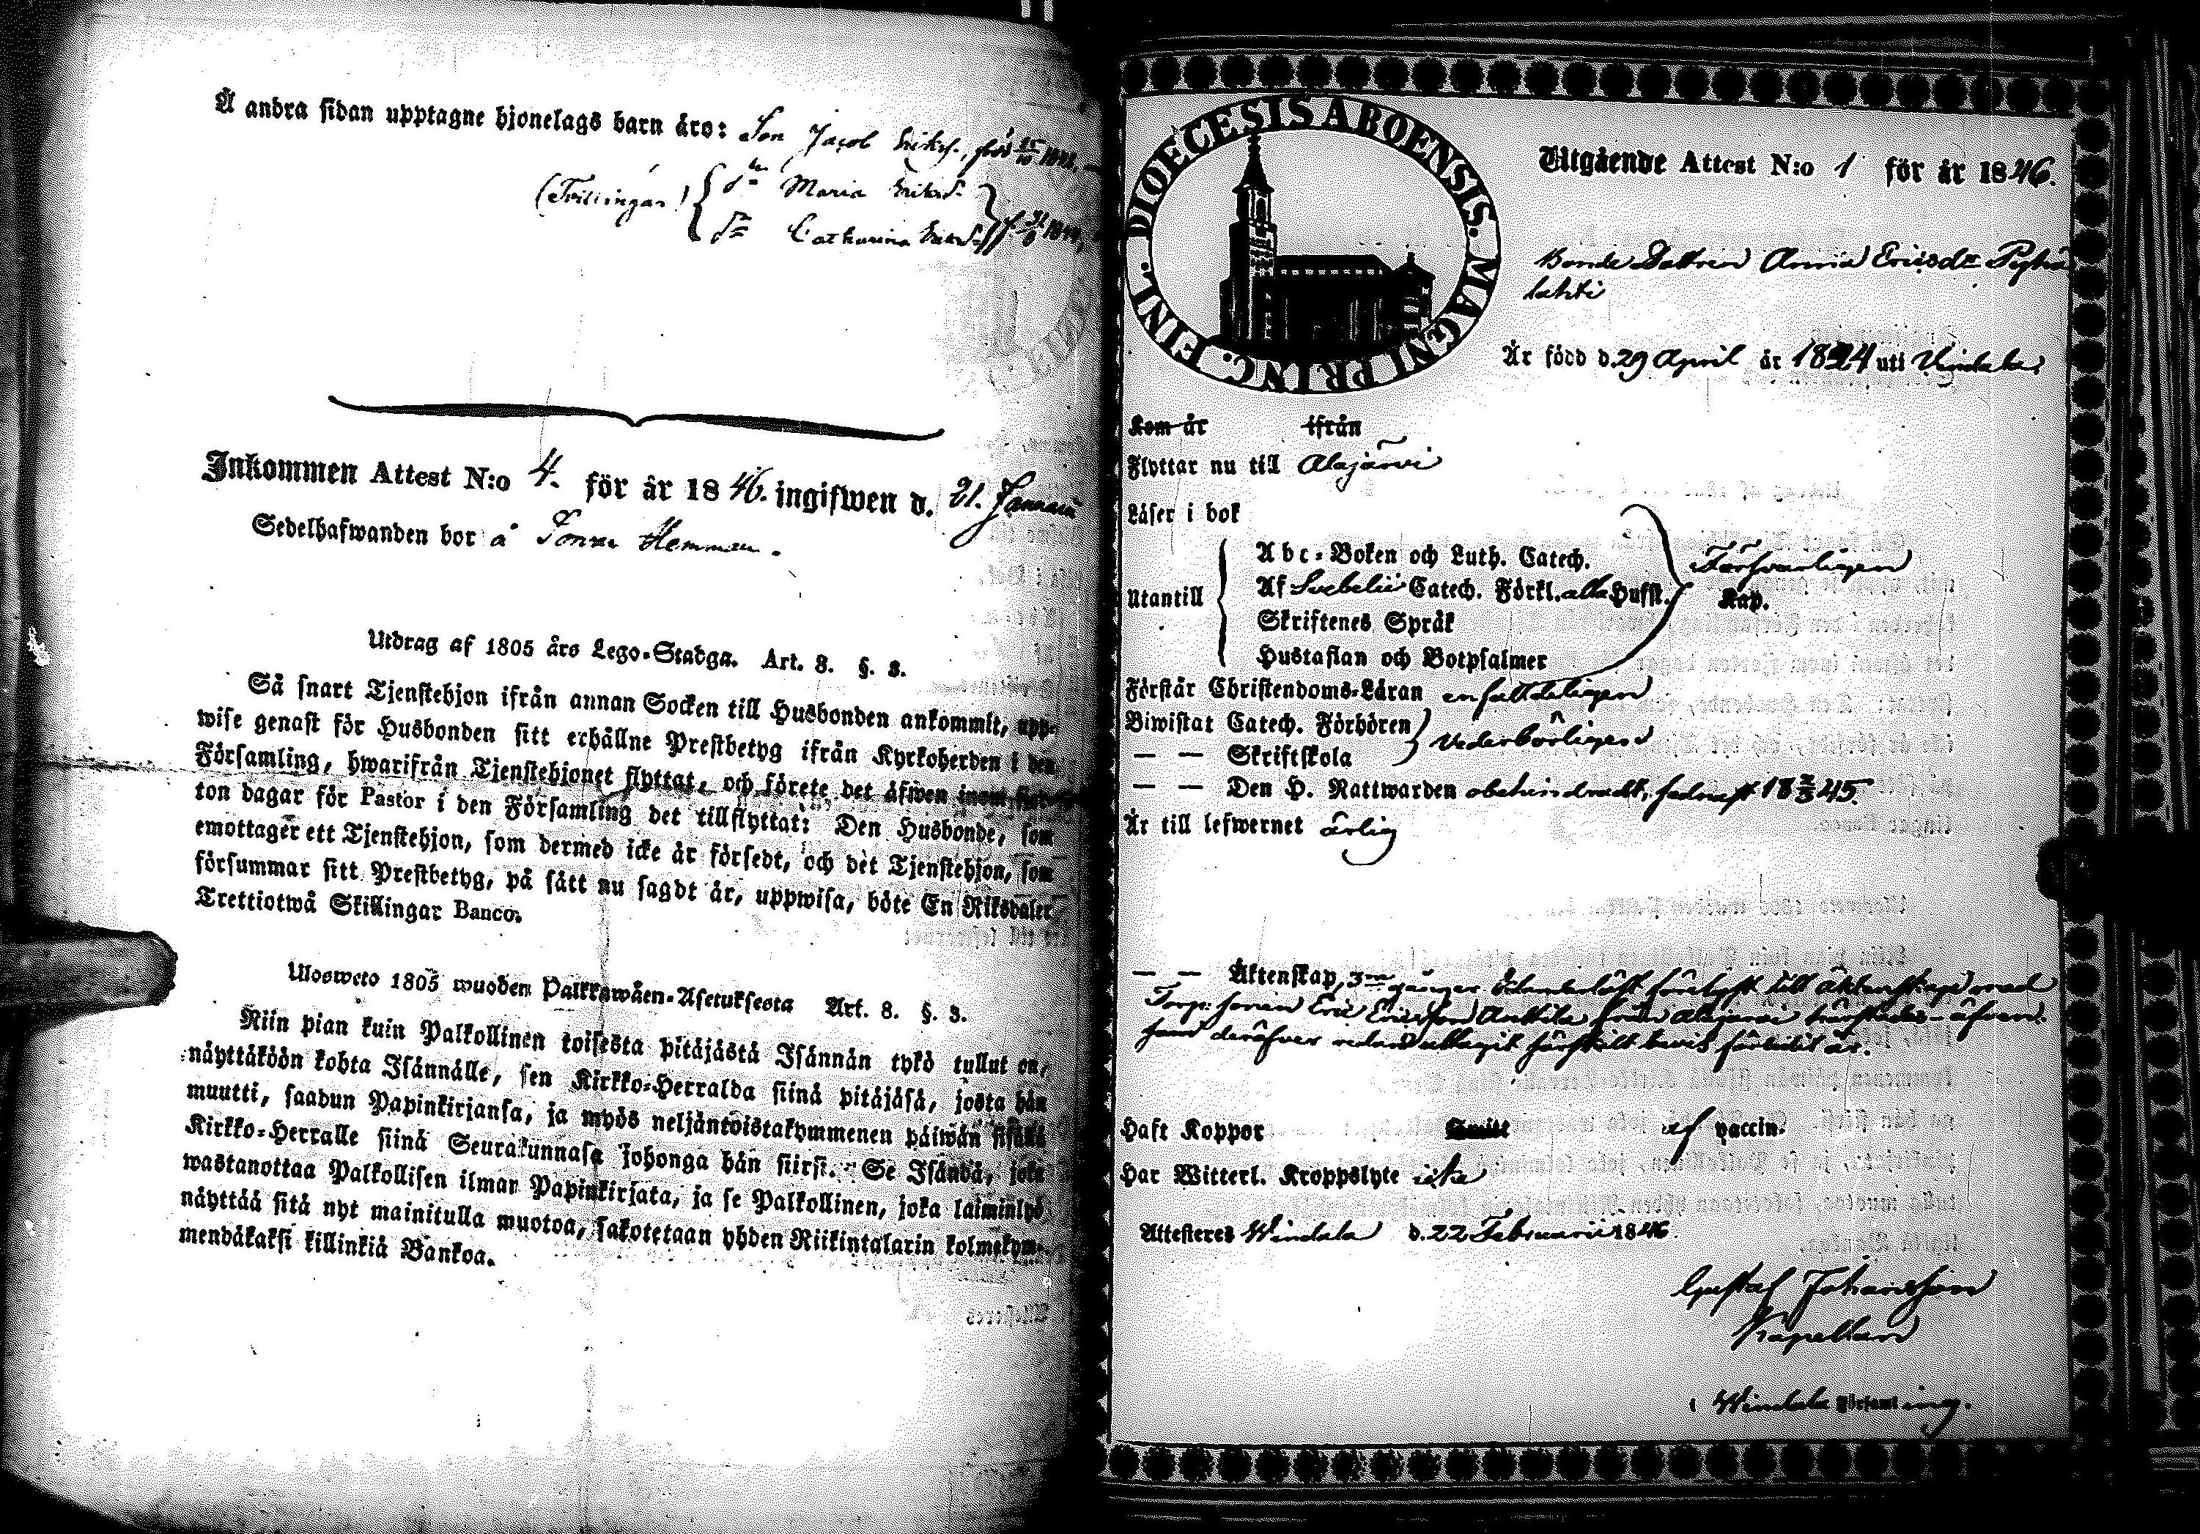 Å andra sidan upptagne hjonelags barn äro: Son Jacob Eriks., född 25/10 1841,
(Tvillingar) d:n Maria Eriksd.
d:n Catharina Eriksd.
Inkommen Attest N:o 4. för år 1846. ingifwen d. 21. Januari
Sedelhafwanden bor å Hemman.
Utdrag af 1805 års Lego-Stadga. Art. 8. §. 3.
Så snart Tjenstehjon ifrån annan Socken till Husbonden ankommit, upp-
wise genast för Husbonden sitt erhållne Prestbetyg ifrån Kyrkoherden i den
Församling, hwarifrån Tjenstehjonet flyttat, och förete det äfwen inom fjor-
ton dagar för Pastor i den Församling det tillflyttat: Den Husbonde, som
emottager ett Tjenstehjon, som dermed icke är försedt, och det Tjenstehjon, som
försummar sitt Prestbetyg, på sätt nu sagdt är, uppwisa, böte En Riksdaler
Trettiotwå Skillingar Banco.
Ulosweto 1805 wuoden Palkkawäen-Asetuksesta Art. 8. §. 3.
Niin pian kuin Palkollinen toisesta pitäjästä Isännän tykö tullut on,
näyttäköön kohta Isännälle, sen Kirkko-Herralda siinä pitäjäsä, josta hän
muutti, saadun Papinkirjansa, ja myös neljäntoistakymmenen päiwän sisällä
Kirkko-Herralle siinä Seurakunnasa johonga hän siirsi. Se Isändä, joka
wastanottaa Palkollisen ilman Papinkirjata, ja se Palkollinen, joka laiminlyö
näyttää sitä nyt mainitulla muotoa, sakotetaan yhden Riikintalarin kolmekym-
mendäkaksi killinkiä Bankoa.
DIOECESIS ABOENSIS. MAGNI PRINC. FINL.
Utgående Attest N:o 1 för år 1846.
Bonde Dottren Anna Ericsdr
lahti
Är född d. 29 April år 1824 uti Vindala
Kom år ifrån
Flyttar nu till Alajärvi
Läser i bok
Utantill
Abc-Boken och Luth. Catech.
Af Svebelii Catech. Förkl. alla Hufst.
Skriftenes Språk
Hustaflan och Botpsalmer
Försvarligen
Kap.
Förstår Christendoms-Läran enfaldeligen
Biwistat Catech. Förhören
— — Skriftskola
Vederbörligen
— — Den H. Nattwarden obehindradt, sednast 18 2/3 45.
Är till lefwernet ärlig
— — Äktenskap, 3:ne gånger lyst till äktenskap med
Torp. sonen Eric Ericsson Anttila från Alajärvi härstädes - äfven
som deröfver redan uttagit särskilt bevis är.
Haft Koppor Smitt af vaccin.
Har Witterl. Kroppslyte icke
Attesteres Windala d. 22 Februarii 1846.
Gustaf Johansson
Kapellan
i Windala Församling.